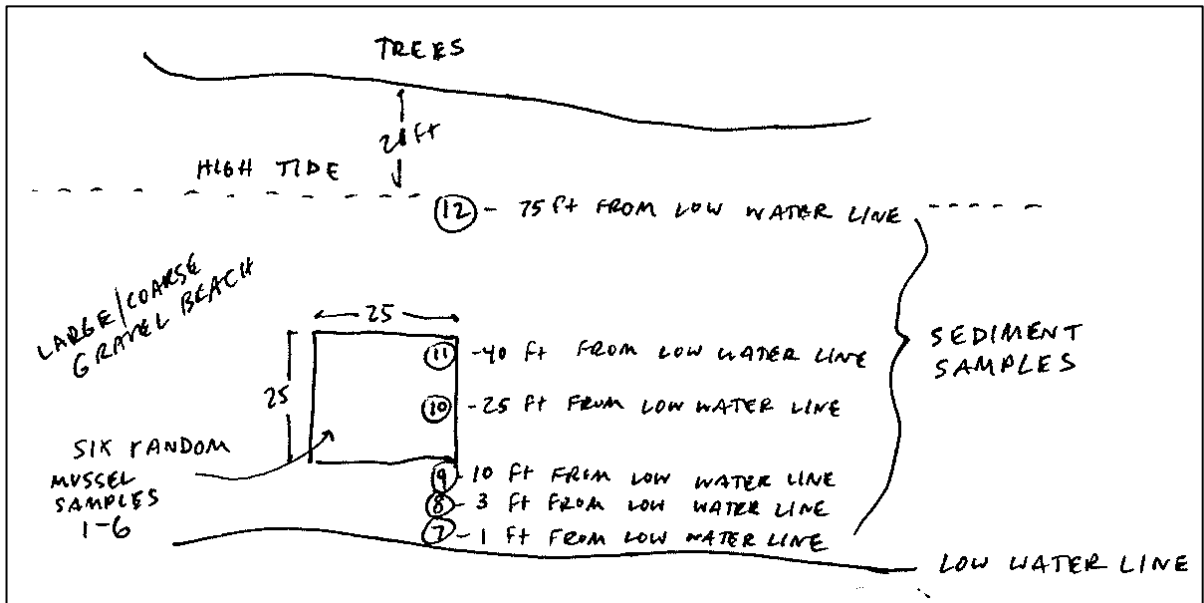 TREES
ft
HIGH TIDE
12 - 75 ft FROM LOW WATER LINE
LARGE/COARSE
GRAVEL BEACH
25
11 - 40 ft FROM LOW WATER LINE
SEDIMENT
SAMPLES
25
10 - 25 ft FROM LOW WATER LINE
SIX RANDOM
MUSSEL
SAMPLES
1-6
9 - 10 ft FROM LOW WATER LINE
8 - 3 ft FROM LOW WATER LINE
7 - 1 ft FROM LOW WATER LINE
LOW WATER LINE